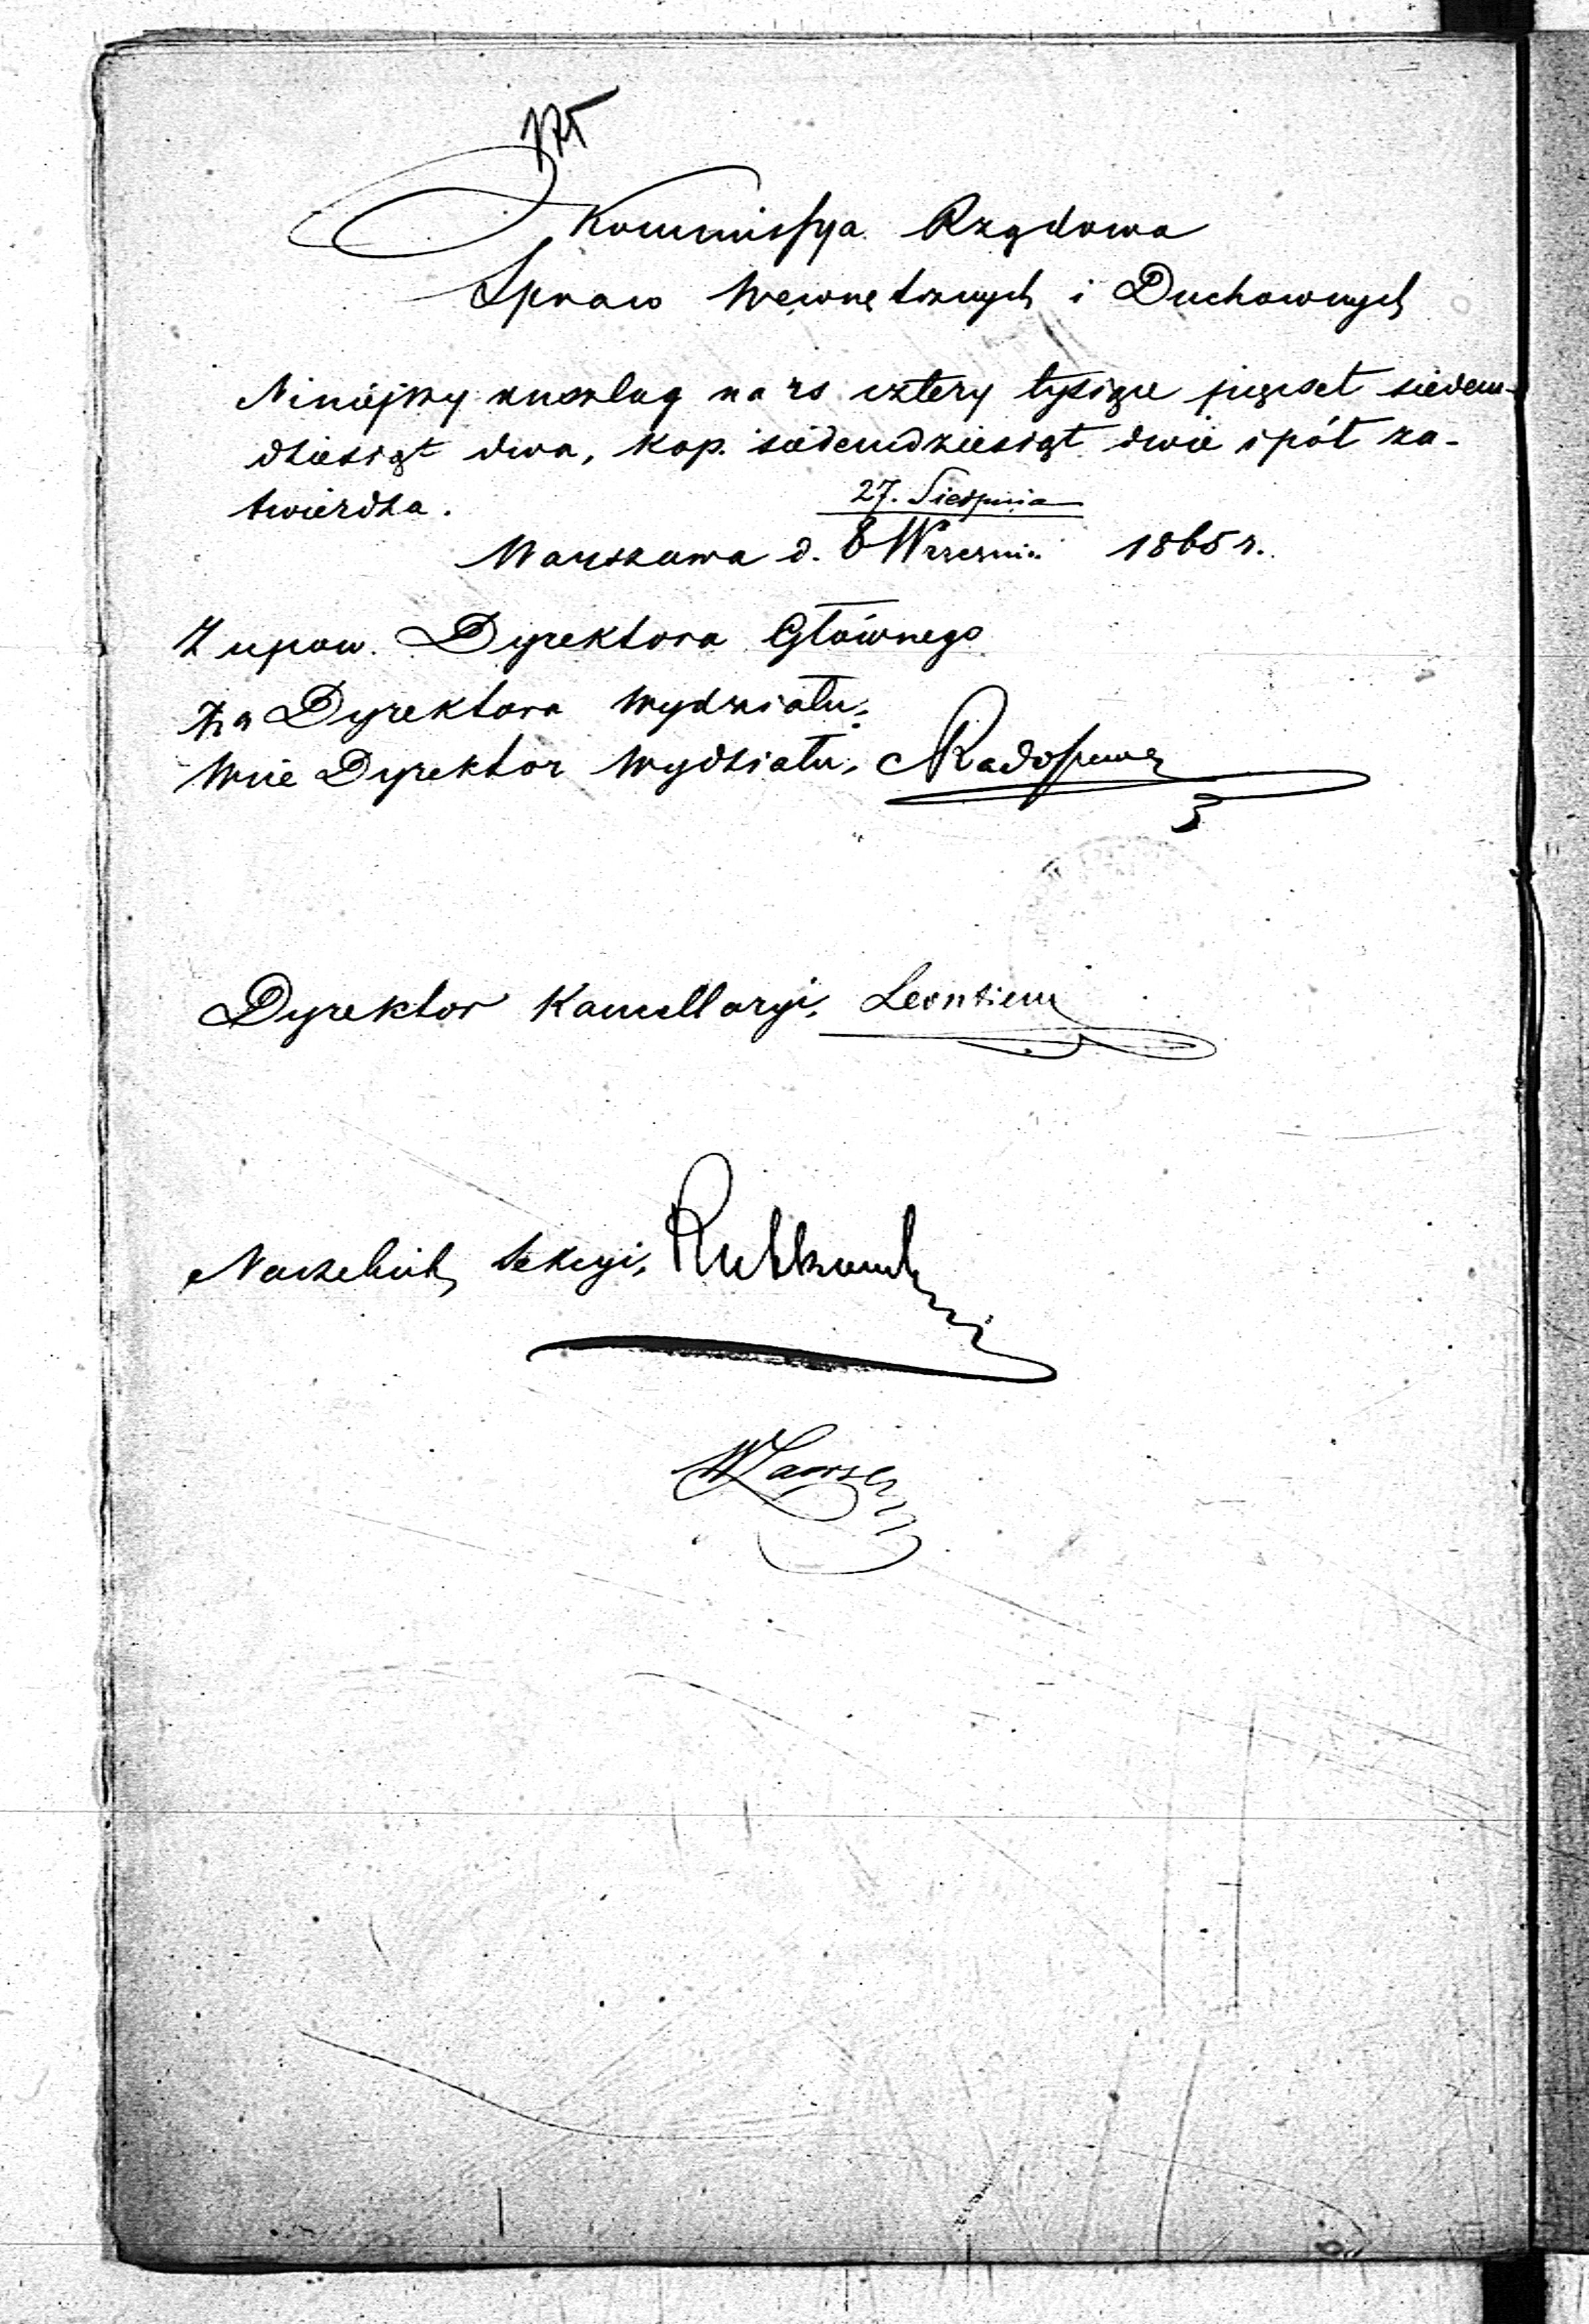 Kommissya Rządowa
Spraw Wewnętrznych i Duchownych
Niniejszy anszlag na rs cztery tysiące pięćset siedem-
dziesiąt dwa, kop. siedemdziesiąt dwie i pół za-
twierdza.
27. Sierpnia
Warszawa d. 8 Września 1865 r.
Z upow. Dyrektora Głównego
za Dyrektora Wydziału,
Wice Dyrektor Wydziału,
Dyrektor Kancellaryi,
Naczelnik Sekcyi,